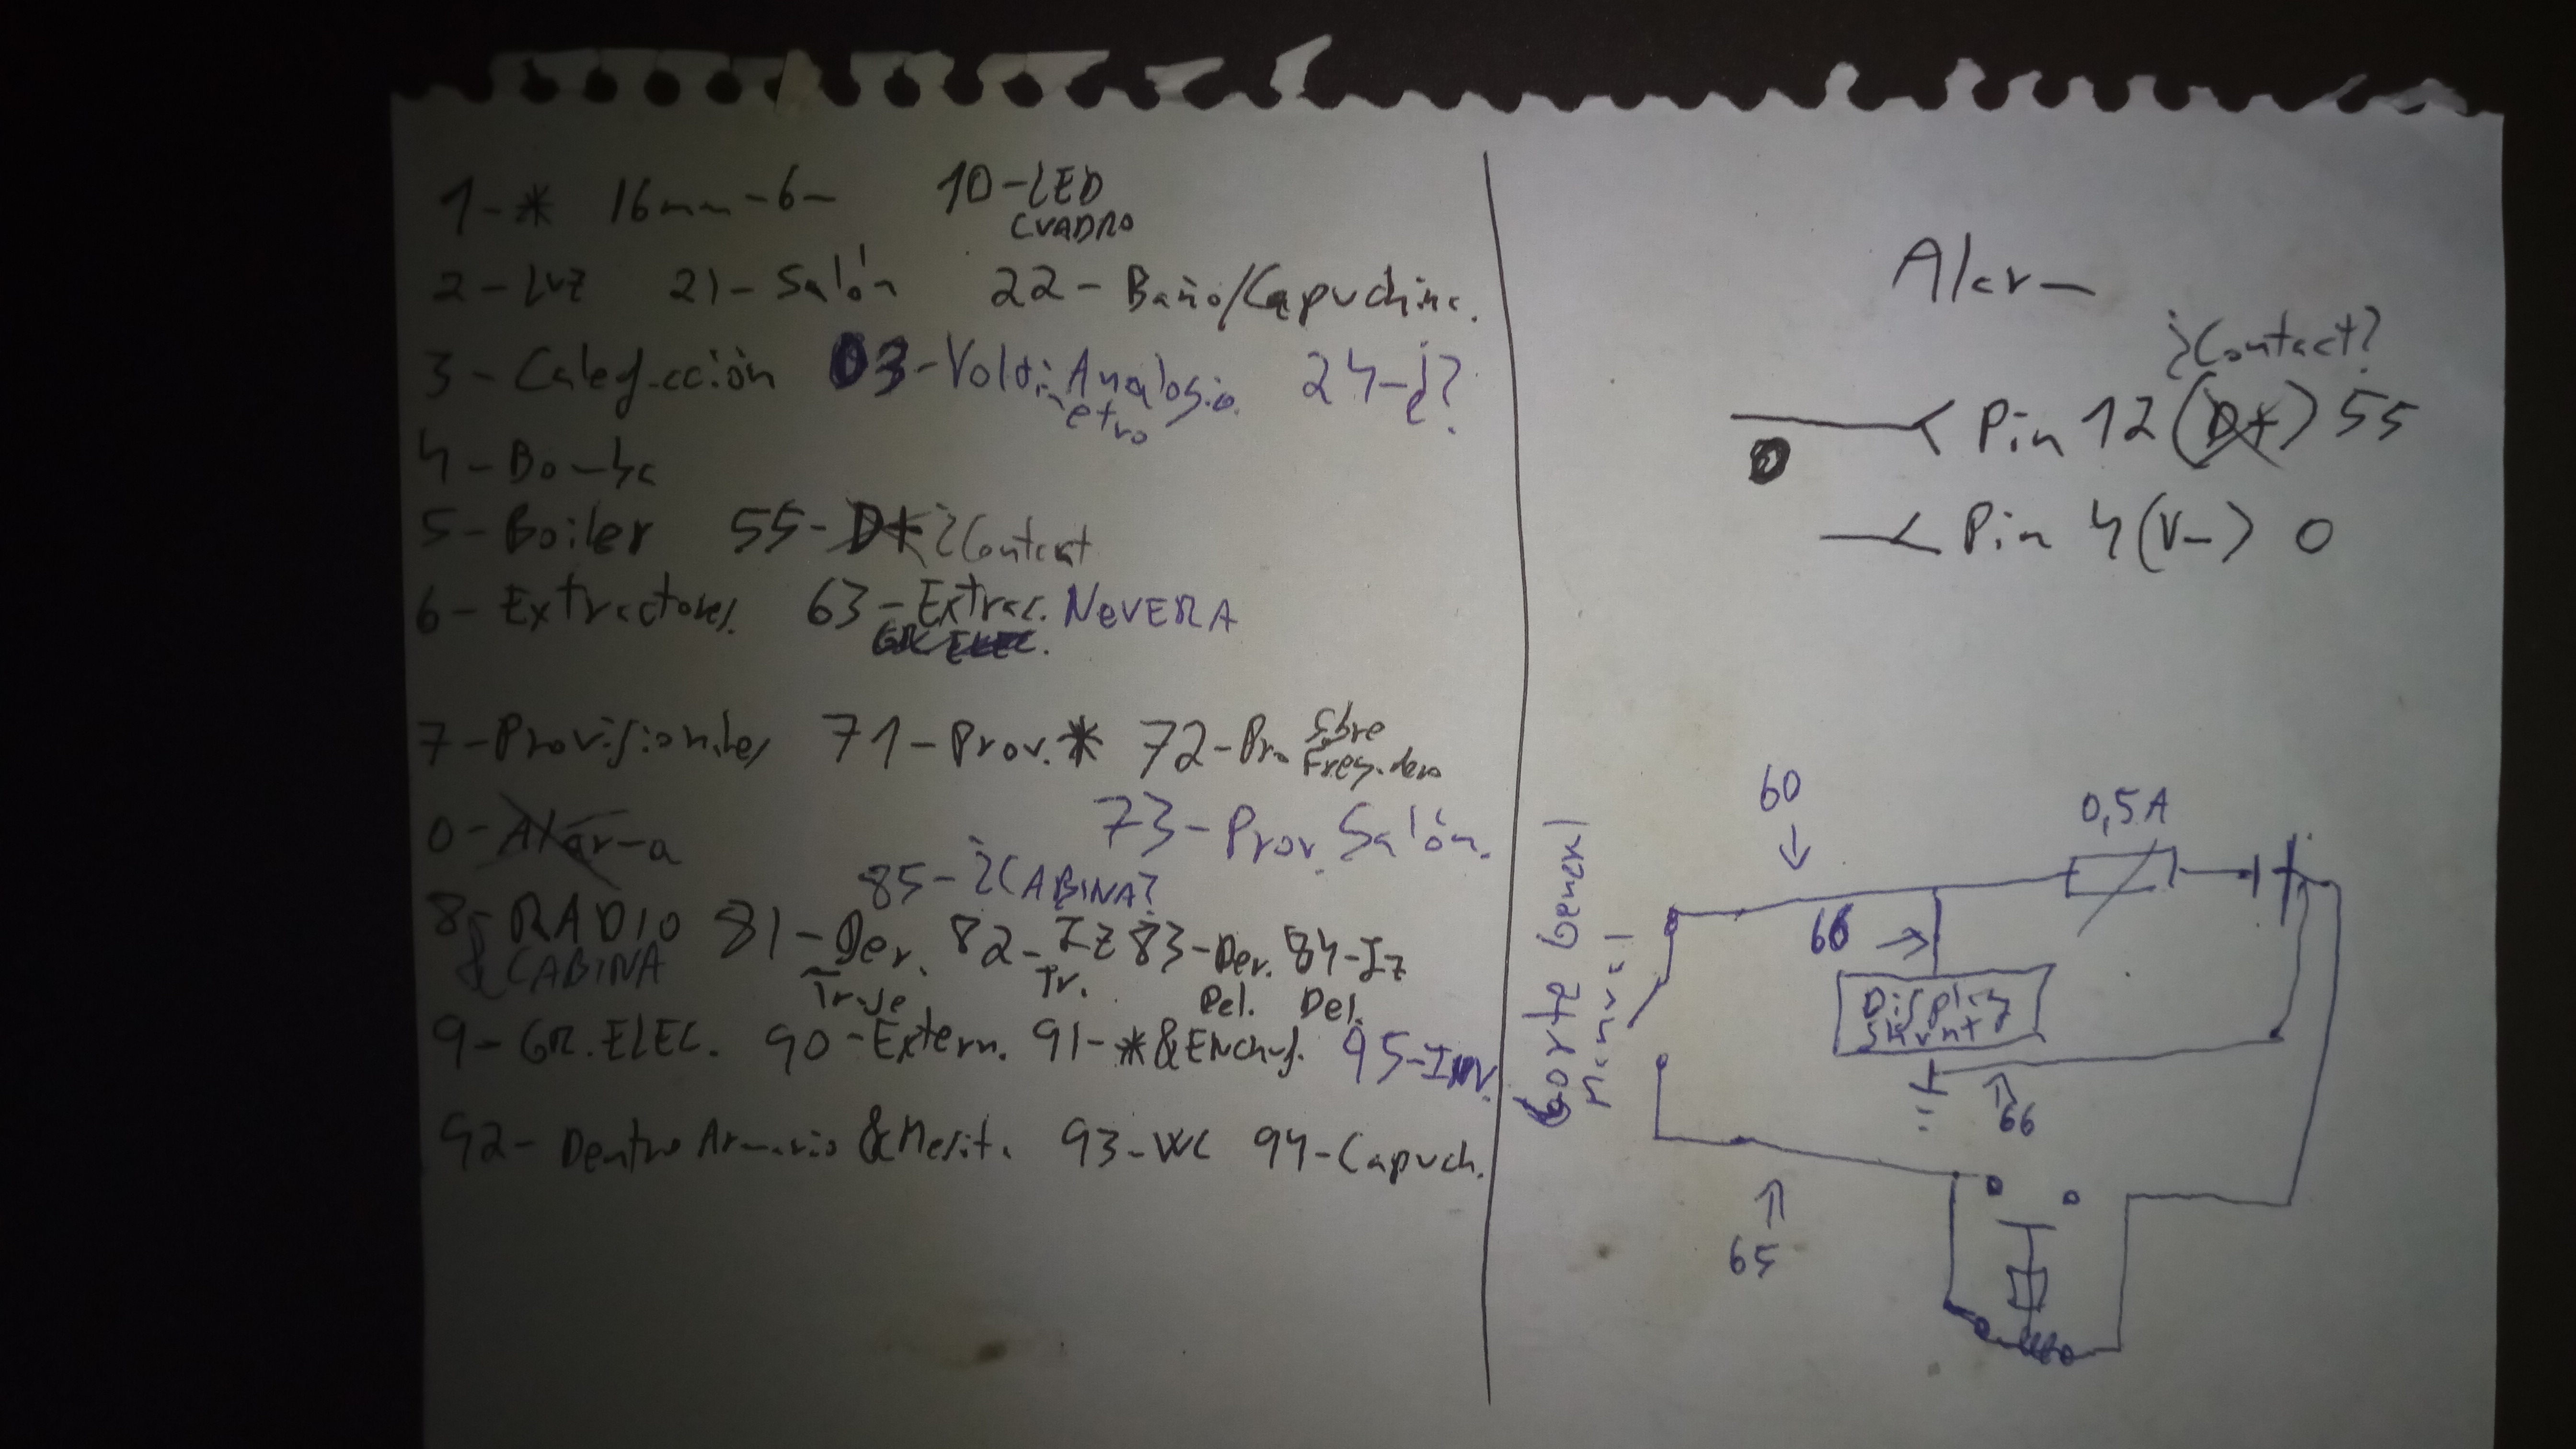 1-* 16mm-6m 10-LED
CUADRO
2-Luz 21-Salón 22-Baño/Capuchina.
3-Calefacción 03-Voltímetro Analógico 24-¿?
4-Bomba
5-Boiler 55-D+ ¿Contact
6-Extractores. 63-Extrac. NEVERA
GR ELEC.
7-Provisionales 71-Prov.* 72-Pro Sobre
Fregadero
0-Alarma 73-Prov. Salón.
85-¿CABINA?
8-RADIO 81-Der. 82-Iz 83-Der. 84-Iz
& CABINA Trase Tr. Del. Del.
9-GR.ELEC. 90-Extern. 91-*&Enchuf. 95-INV.
92-Dentro Armario &Mesita 93-WC 94-Capuch.
Alarm
¿Contact?
0
Pin 12 (D+) 55
Pin 4 (V-) 0
Corte General
Manual
60
0,5A
66
Display
Shunt
66
65